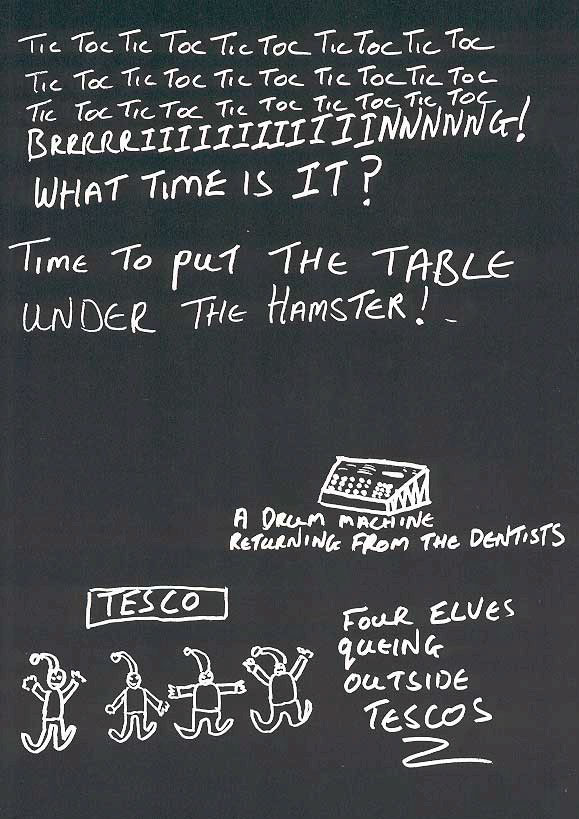 Tic Toc Tic Toc Tic Toc Tic Toc Tic Toc
Tic Toc Tic Toc Tic Toc Tic Toc Tic Toc
Tic Toc Tic Toc Tic Toc Tic Toc Tic Toc
BRRRRRIIIIIIIIIIIINNNNNG!
WHAT TIME IS IT?
TIME TO PUT THE TABLE
UNDER THE HAMSTER!
A DRUM MACHINE
RETURNING FROM THE DENTISTS
TESCO
FOUR ELVES
QUEING
OUTSIDE
TESCOS